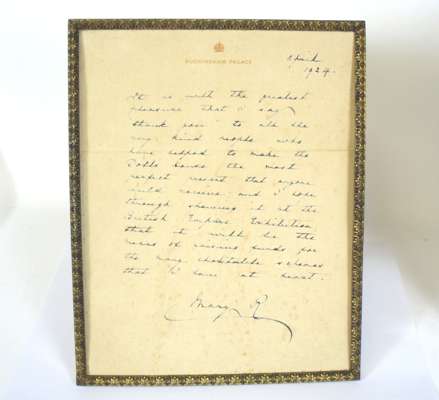 BUCKINGHAM PALACE
1924.
It is with the greatest
pleasure that I say
"thank you" to all the
very kind people who
have helped to make the
Dolls House the most
perfect present that anyone
could receive and I hope
through showing it at the
British Empire Exhibition
that it will be the
means of raising funds for
the many charitable schemes
that I have at heart.
Mary R